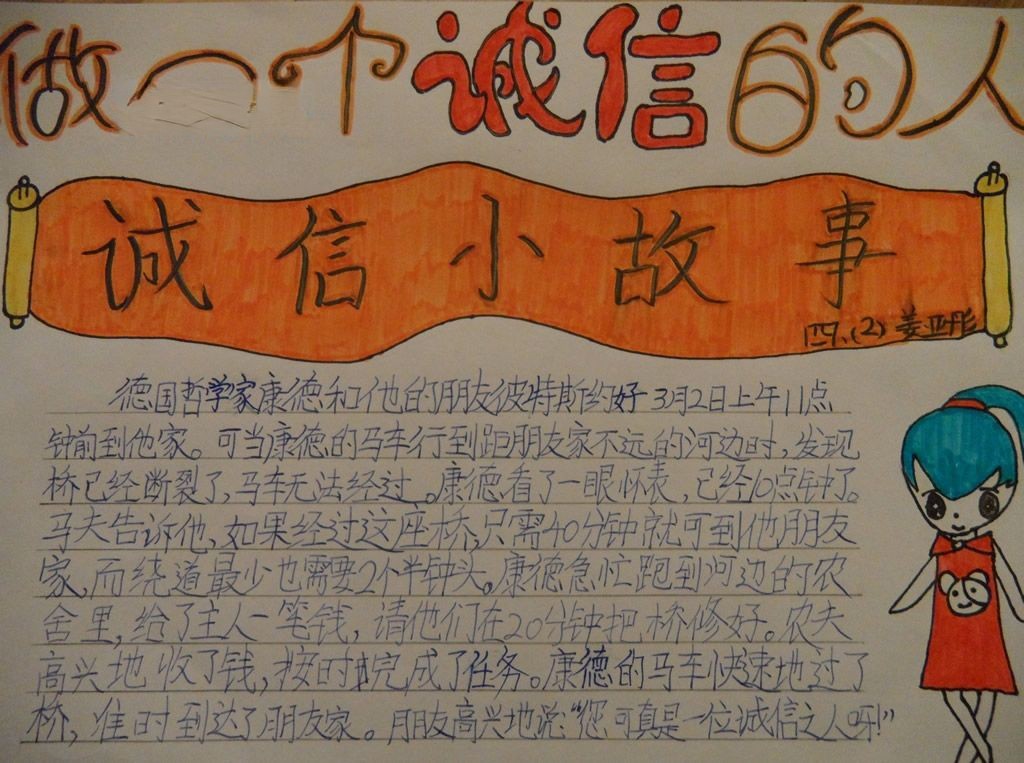 做一个诚信的人
诚信小故事
四、(2) 姜亚彤
德国哲学家康德和他的朋友彼特斯约好3月2日上午11点
钟前到他家。可当康德的马车行到距朋友家不远的河边时,发现
桥已经断裂了,马车无法经过。康德看了一眼怀表,已经10点钟了。
马夫告诉他,如果经过这座桥,只需40分钟就可到他朋友
家,而绕道最少也需要2个半钟头。康德急忙跑到河边的农
舍里,给了主人一笔钱,请他们在20分钟把桥修好。农夫
高兴地收了钱,按时完成了任务。康德的马车快速地过了
桥,准时到达了朋友家。朋友高兴地说:“您可真是一位诚信之人呀!”